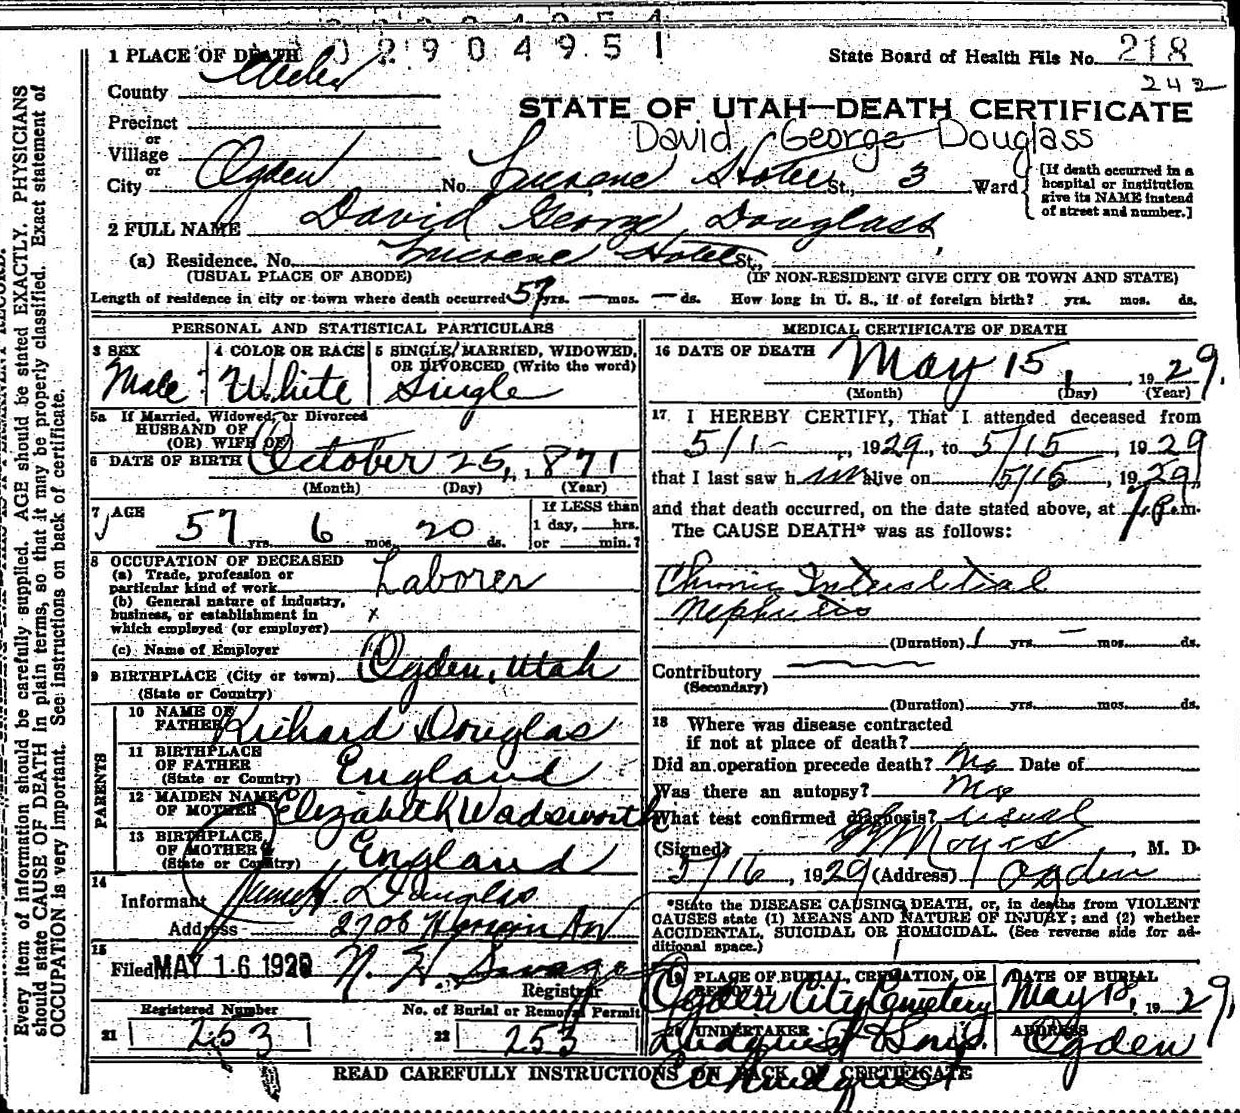 0 2 9 0 4 9 5 1
1 PLACE OF DEATH
State Board of Health File No. 218
242
County Weber
STATE OF UTAH—DEATH CERTIFICATE
Precinct
David George Douglass
or
Village
or
City Ogden No. Hotel St., 3 Ward
[If death occurred in a hospital or institution give its NAME instead of street and number.]
2 FULL NAME David George Douglass
(a) Residence. No. Hotel St.,
(USUAL PLACE OF ABODE) (IF NON-RESIDENT GIVE CITY OR TOWN AND STATE)
Length of residence in city or town where death occurred 57 yrs. — mos. — ds. How long in U. S., if of foreign birth? yrs. mos. ds.
PERSONAL AND STATISTICAL PARTICULARS
3 SEX Male
4 COLOR OR RACE White
5 SINGLE, MARRIED, WIDOWED, OR DIVORCED (Write the word) Single
5a If Married, Widowed, or Divorced
HUSBAND OF
(OR) WIFE OF
6 DATE OF BIRTH October 25, 1871
(Month) (Day) (Year)
7 AGE 57 yrs. 6 mos. 20 ds.
If LESS than
1 day, hrs.
or min.?
8 OCCUPATION OF DECEASED
(a) Trade, profession or
particular kind of work Laborer
(b) General nature of industry,
business, or establishment in x
which employed (or employer)
(c) Name of Employer
9 BIRTHPLACE (City or town) Ogden, Utah
(State or Country)
PARENTS
10 NAME OF
FATHER Richard Douglas
11 BIRTHPLACE
OF FATHER England
(State or Country)
12 MAIDEN NAME
OF MOTHER Elizabeth Wadsworth
13 BIRTHPLACE
OF MOTHER England
(State or Country)
14
Informant James H. Douglas
Address 2706
15
Filed MAY 16 1929 N. H. Savage
Registrar
Registered Number No. of Burial or Removal Permit
21 253 22 253
MEDICAL CERTIFICATE OF DEATH
16 DATE OF DEATH May 15, 1929.
(Month) (Day) (Year)
17 I HEREBY CERTIFY, That I attended deceased from
5/1 -, 1929, to 5/15, 1929
that I last saw him alive on 5/15, 1929,
and that death occurred, on the date stated above, at 7 P.m.
The CAUSE DEATH* was as follows:
Chronic Interstitial
Nephritis
(Duration) 1 yrs. — mos. ds.
Contributory
(Secondary)
(Duration) yrs. mos. ds.
18 Where was disease contracted
if not at place of death?
Did an operation precede death? No Date of
Was there an autopsy? No
What test confirmed diagnosis? Usual
(Signed) , M. D.
5/16, 1929 (Address) Ogden
*State the DISEASE CAUSING DEATH, or, in deaths from VIOLENT
CAUSES state (1) MEANS AND NATURE OF INJURY; and (2) whether
ACCIDENTAL, SUICIDAL OR HOMICIDAL. (See reverse side for additional space.)
19 PLACE OF BURIAL, CREMATION, OR REMOVAL Ogden City Cemetery
DATE OF BURIAL May 18, 1929,
20 UNDERTAKER Lindquist & Sons.
ADDRESS Ogden
READ CAREFULLY INSTRUCTIONS ON BACK OF CERTIFICATE
Every item of information should be carefully supplied. AGE should be stated EXACTLY. PHYSICIANS
should state CAUSE OF DEATH in plain terms, so that it may be properly classified. Exact statement of
OCCUPATION is very important. See instructions on back of certificate.